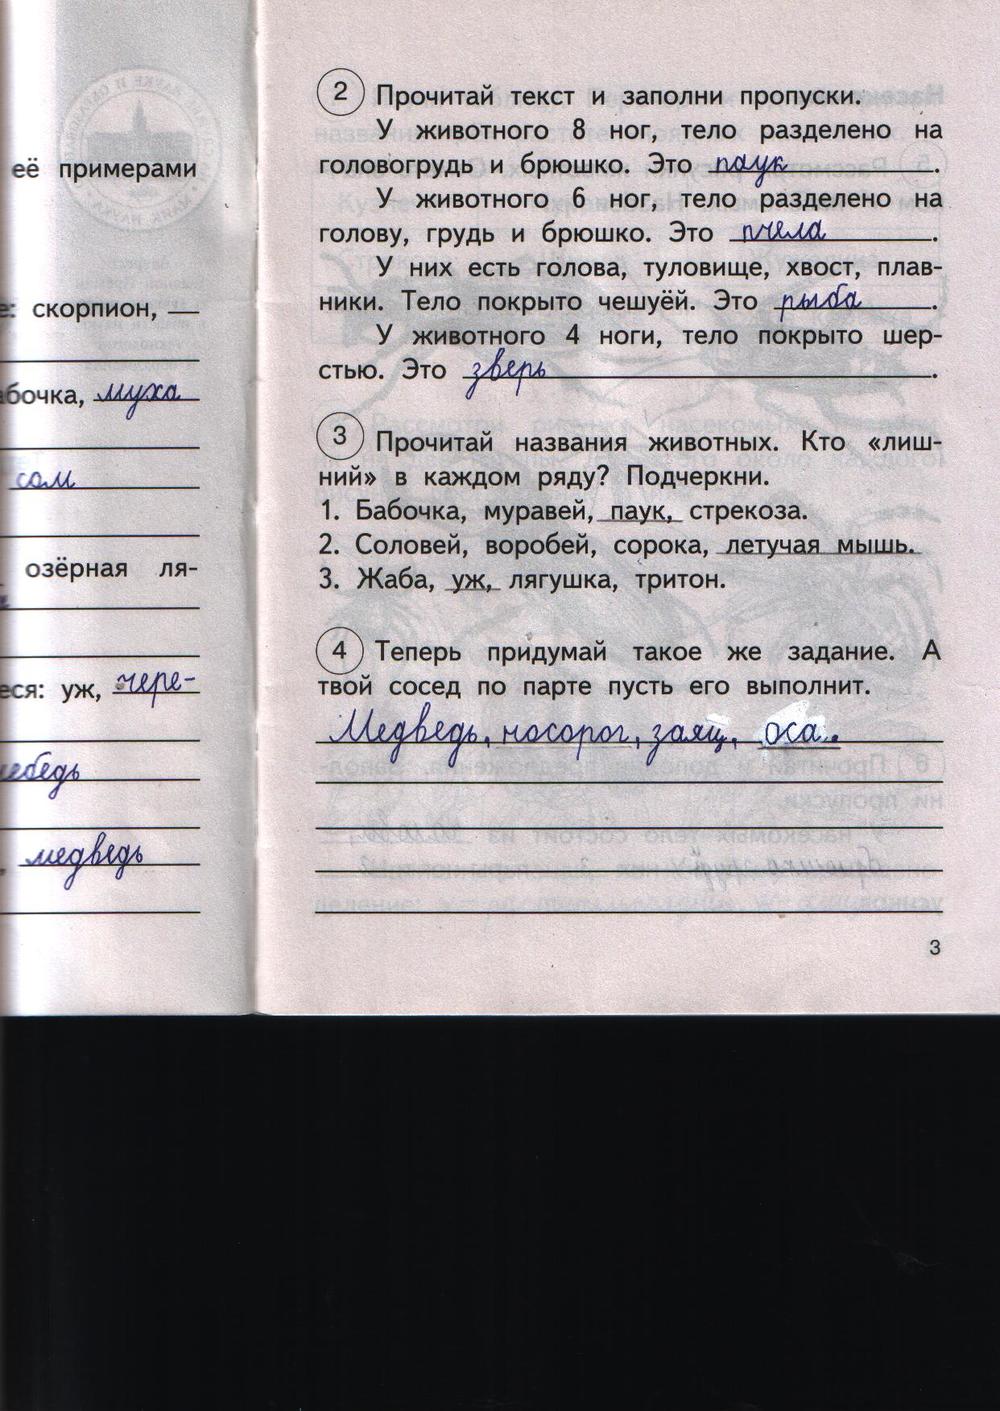 её примерами
скорпион,
бочка, муха
сом
озёрная ля-
уж, чере-
лебедь
медведь
2 Прочитай текст и заполни пропуски.
У животного 8 ног, тело разделено на
головогрудь и брюшко. Это паук.
У животного 6 ног, тело разделено на
голову, грудь и брюшко. Это пчела.
У них есть голова, туловище, хвост, плав-
ники. Тело покрыто чешуёй. Это рыба.
У животного 4 ноги, тело покрыто шер-
стью. Это зверь.
3 Прочитай названия животных. Кто «лиш-
ний» в каждом ряду? Подчеркни.
1. Бабочка, муравей, паук, стрекоза.
2. Соловей, воробей, сорока, летучая мышь.
3. Жаба, уж, лягушка, тритон.
4 Теперь придумай такое же задание. А
твой сосед по парте пусть его выполнит.
Медведь, носорог, заяц, оса.
3